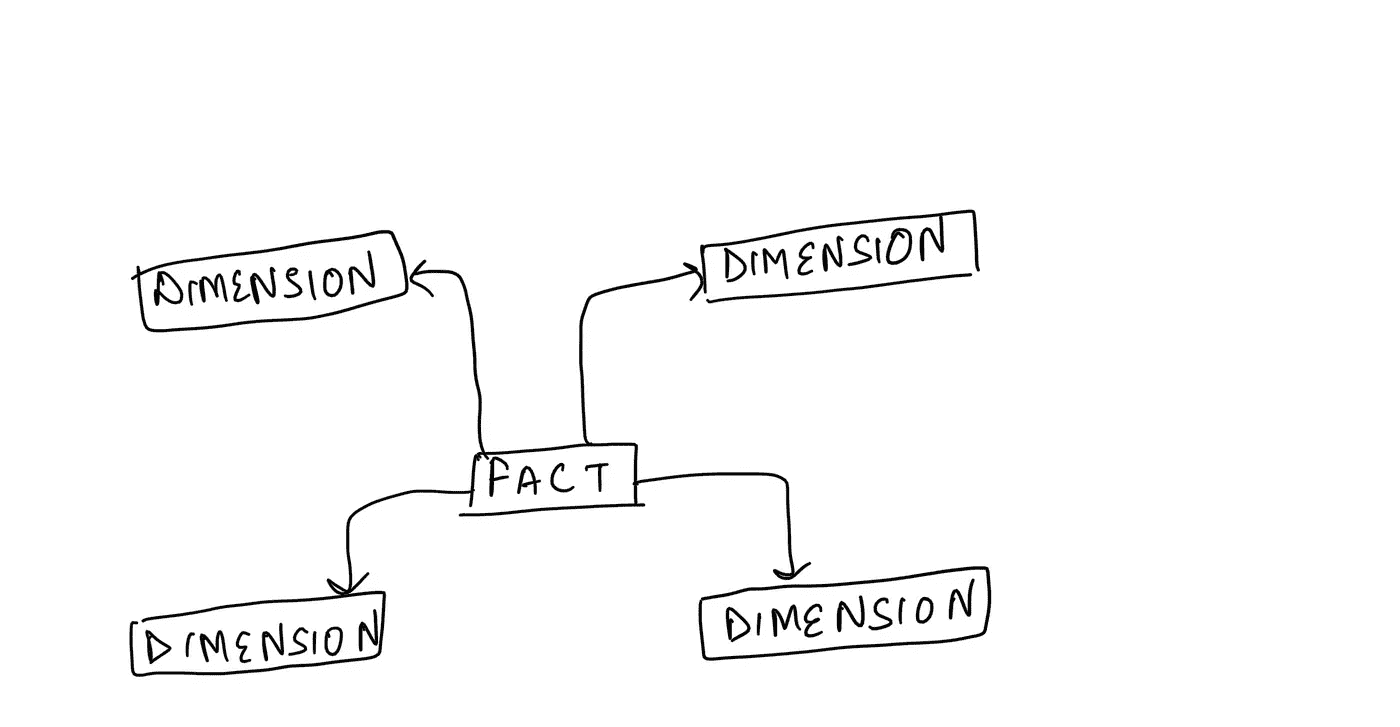 DIMENSION
DIMENSION
FACT
DIMENSION
DIMENSION